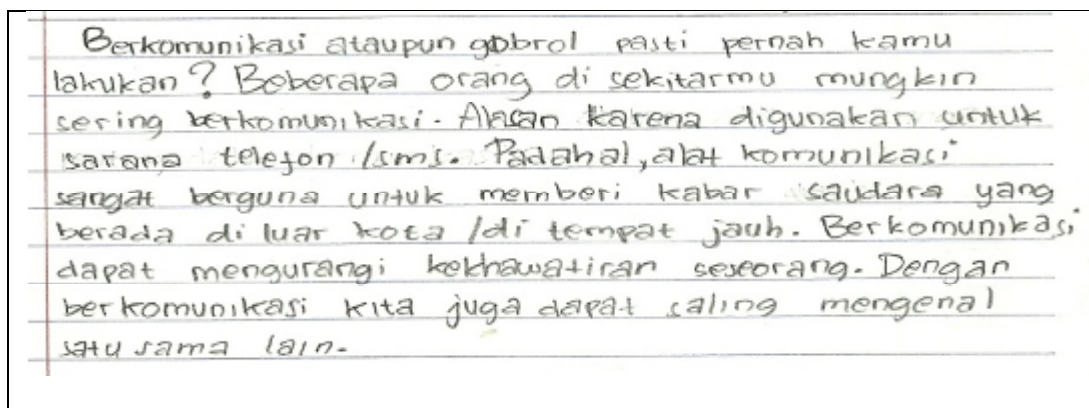 Berkomunikasi ataupun gobrol pasti pernah kamu
lakukan? Beberapa orang di sekitarmu mungkin
sering berkomunikasi. Alasan karena digunakan untuk
sarana telefon /sms. Padahal, alat komunikasi
sangat berguna untuk memberi kabar saudara yang
berada di luar kota /di tempat jauh. Berkomunikasi
dapat mengurangi kekhawatiran seseorang. Dengan
berkomunikasi kita juga dapat saling mengenal
satu sama lain.